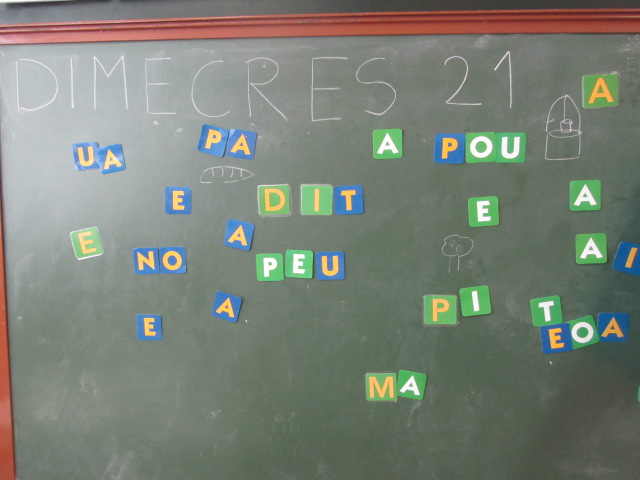 DIMECRES 21
A
UA PA A POU
E DIT E A
E A
NO PEU A I
A PI T
E EOA
MA